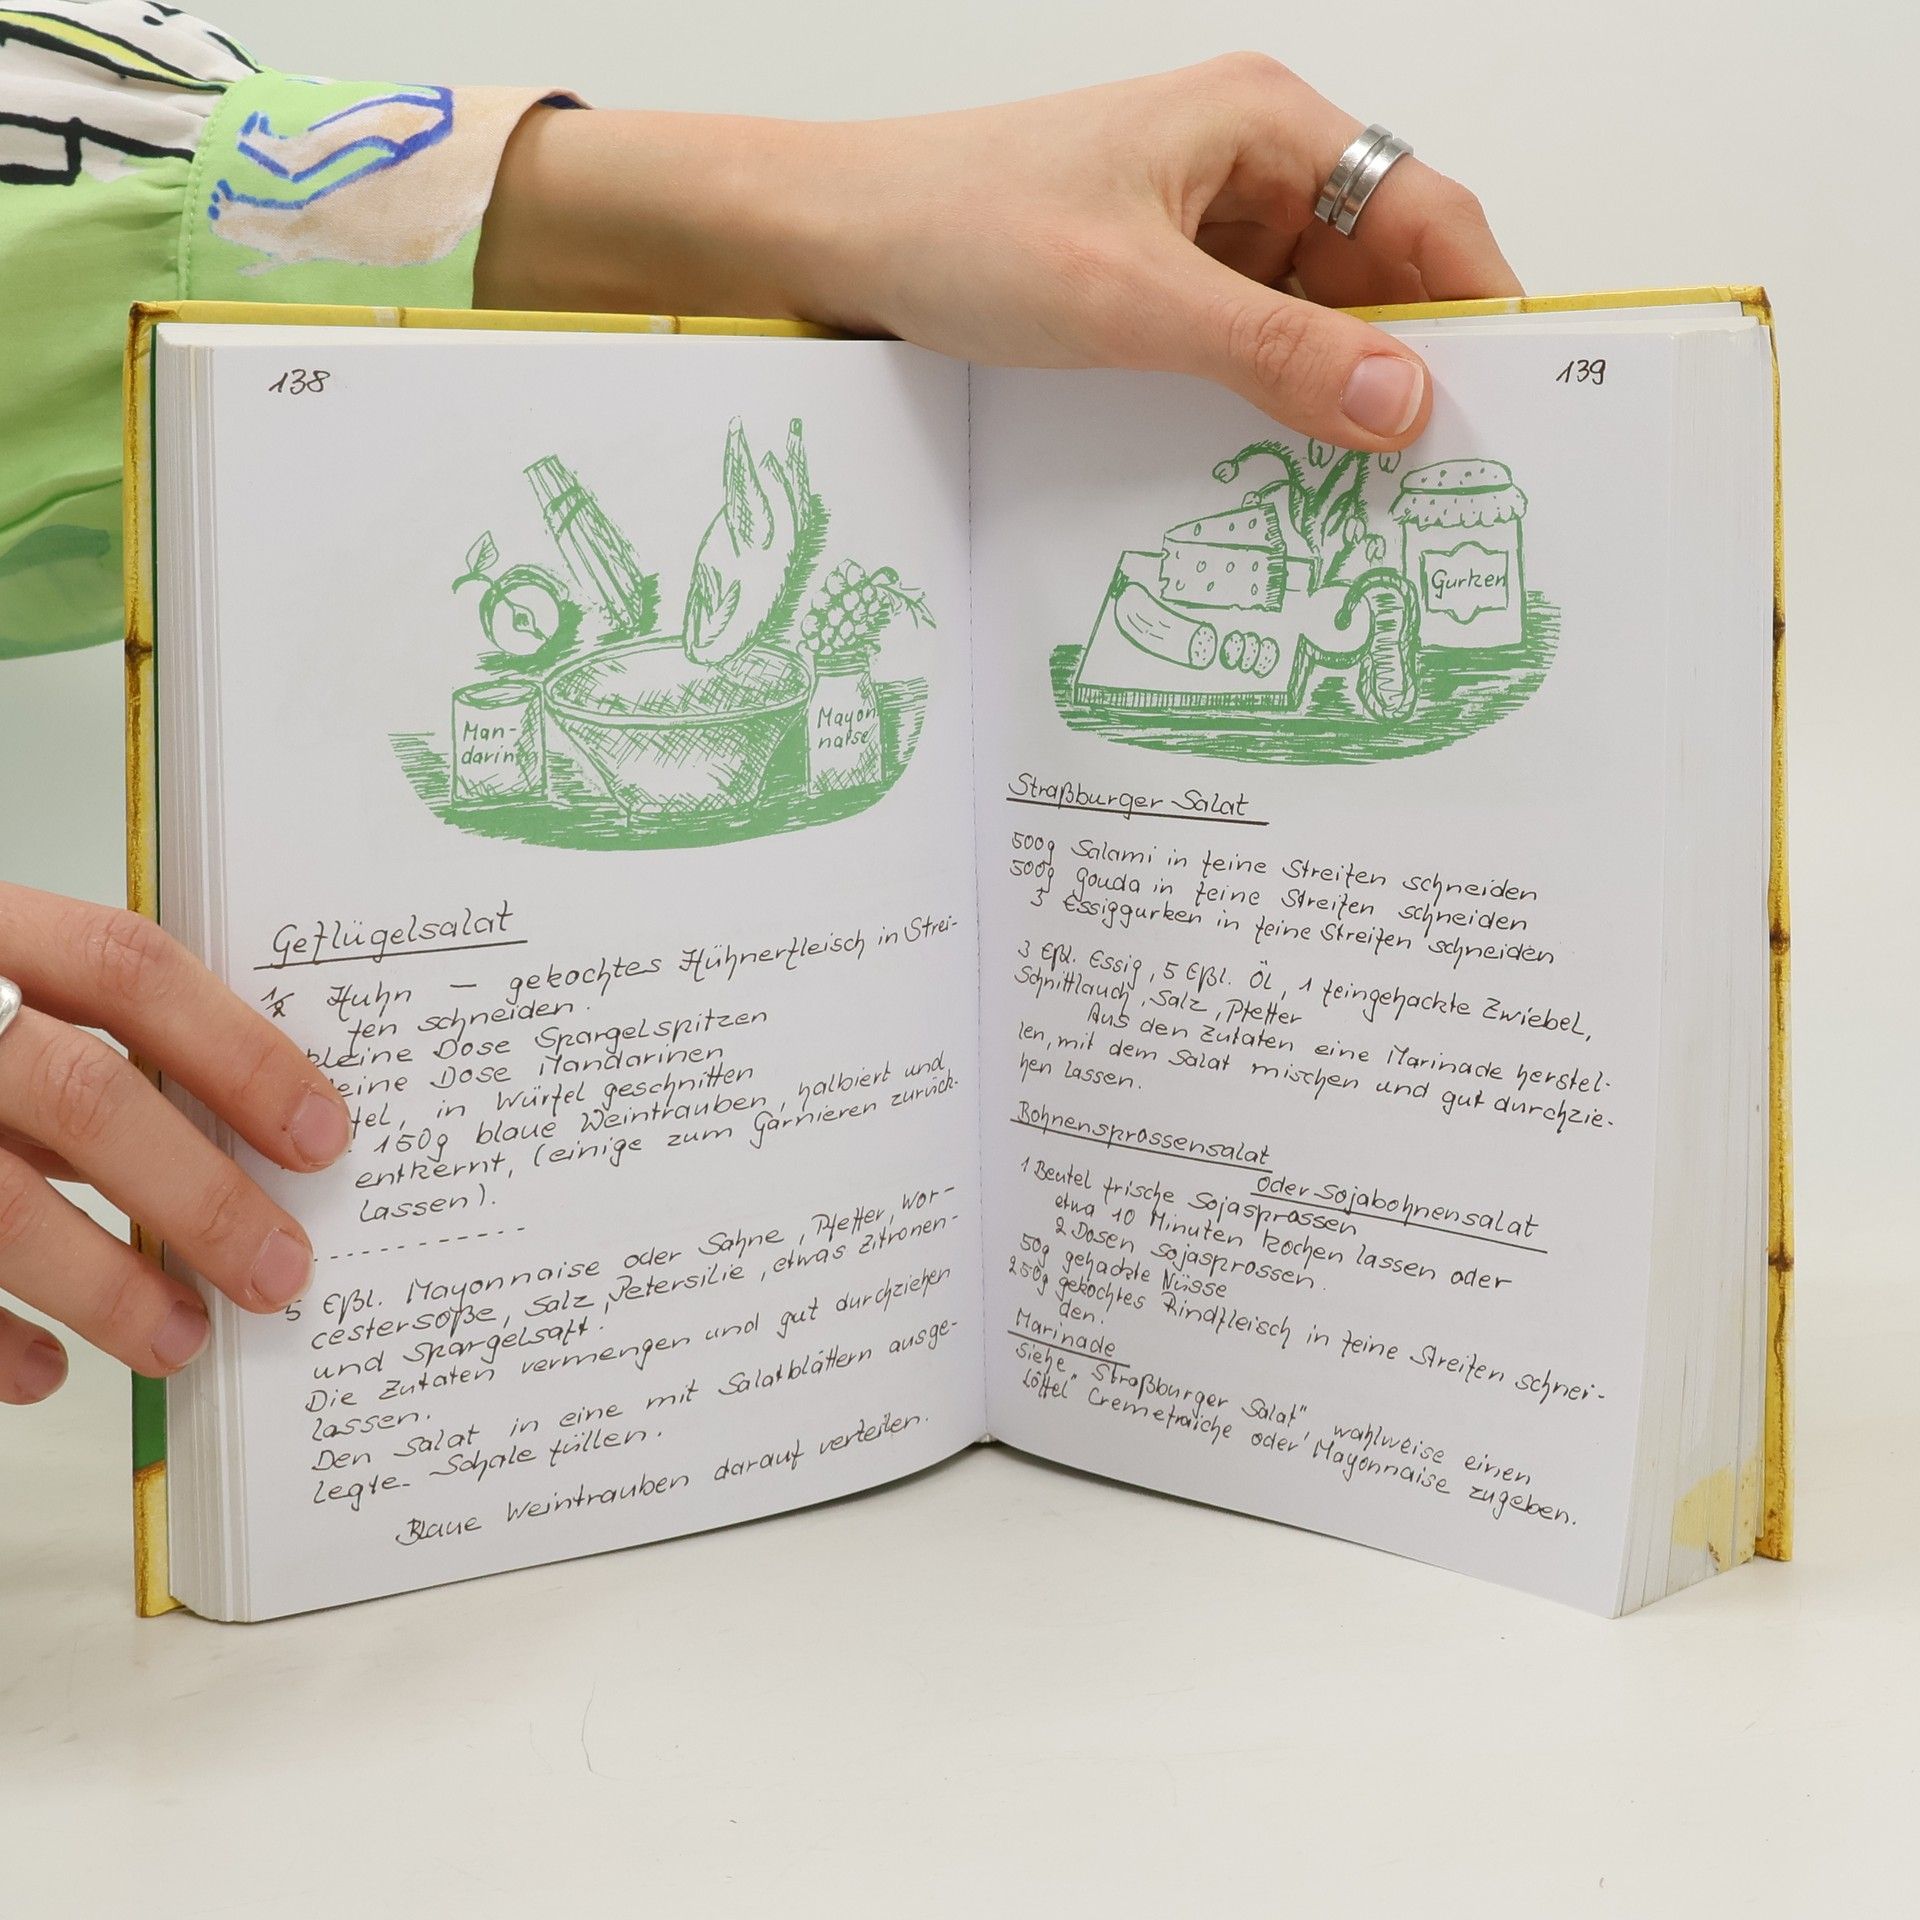 138
Man-
darin
Mayon
naise
Geflügelsalat
1/2 Huhn — gekochtes Hühnerfleisch in Strei-
fen schneiden.
kleine Dose Spargelspitzen
eine Dose Mandarinen
fel, in Würfel geschnitten
150g blaue Weintrauben, halbiert und
entkernt, (einige zum Garnieren zurück-
lassen).
- - - - - - - - - - -
5 Eßl. Mayonnaise oder Sahne, Pfeffer, Wor-
cestersoße, Salz, Petersilie, etwas Zitronen-
und Spargelsaft.
Die Zutaten vermengen und gut durchziehen
lassen.
Den Salat in eine mit Salatblättern ausge-
legte Schale füllen.
Blaue Weintrauben darauf verteilen.
139
Gurken
Straßburger Salat
500g Salami in feine Streifen schneiden
500g Gouda in feine Streifen schneiden
3 Essiggurken in feine Streifen schneiden
3 Eßl. Essig, 5 Eßl. Öl, 1 feingehackte Zwiebel,
Schnittlauch, Salz, Pfeffer
Aus den Zutaten eine Marinade herstel-
len, mit dem Salat mischen und gut durchzie-
hen lassen.
Bohnensprossensalat
oder Sojabohnensalat
1 Beutel frische Sojasprossen
etwa 10 Minuten kochen lassen oder
2 Dosen Sojasprossen.
50g gehackte Nüsse
250g gekochtes Rindfleisch in feine Streifen schnei-
den.
Marinade
siehe „Straßburger Salat", wahlweise einen
Löffel" Cremefraiche oder Mayonnaise zugeben.